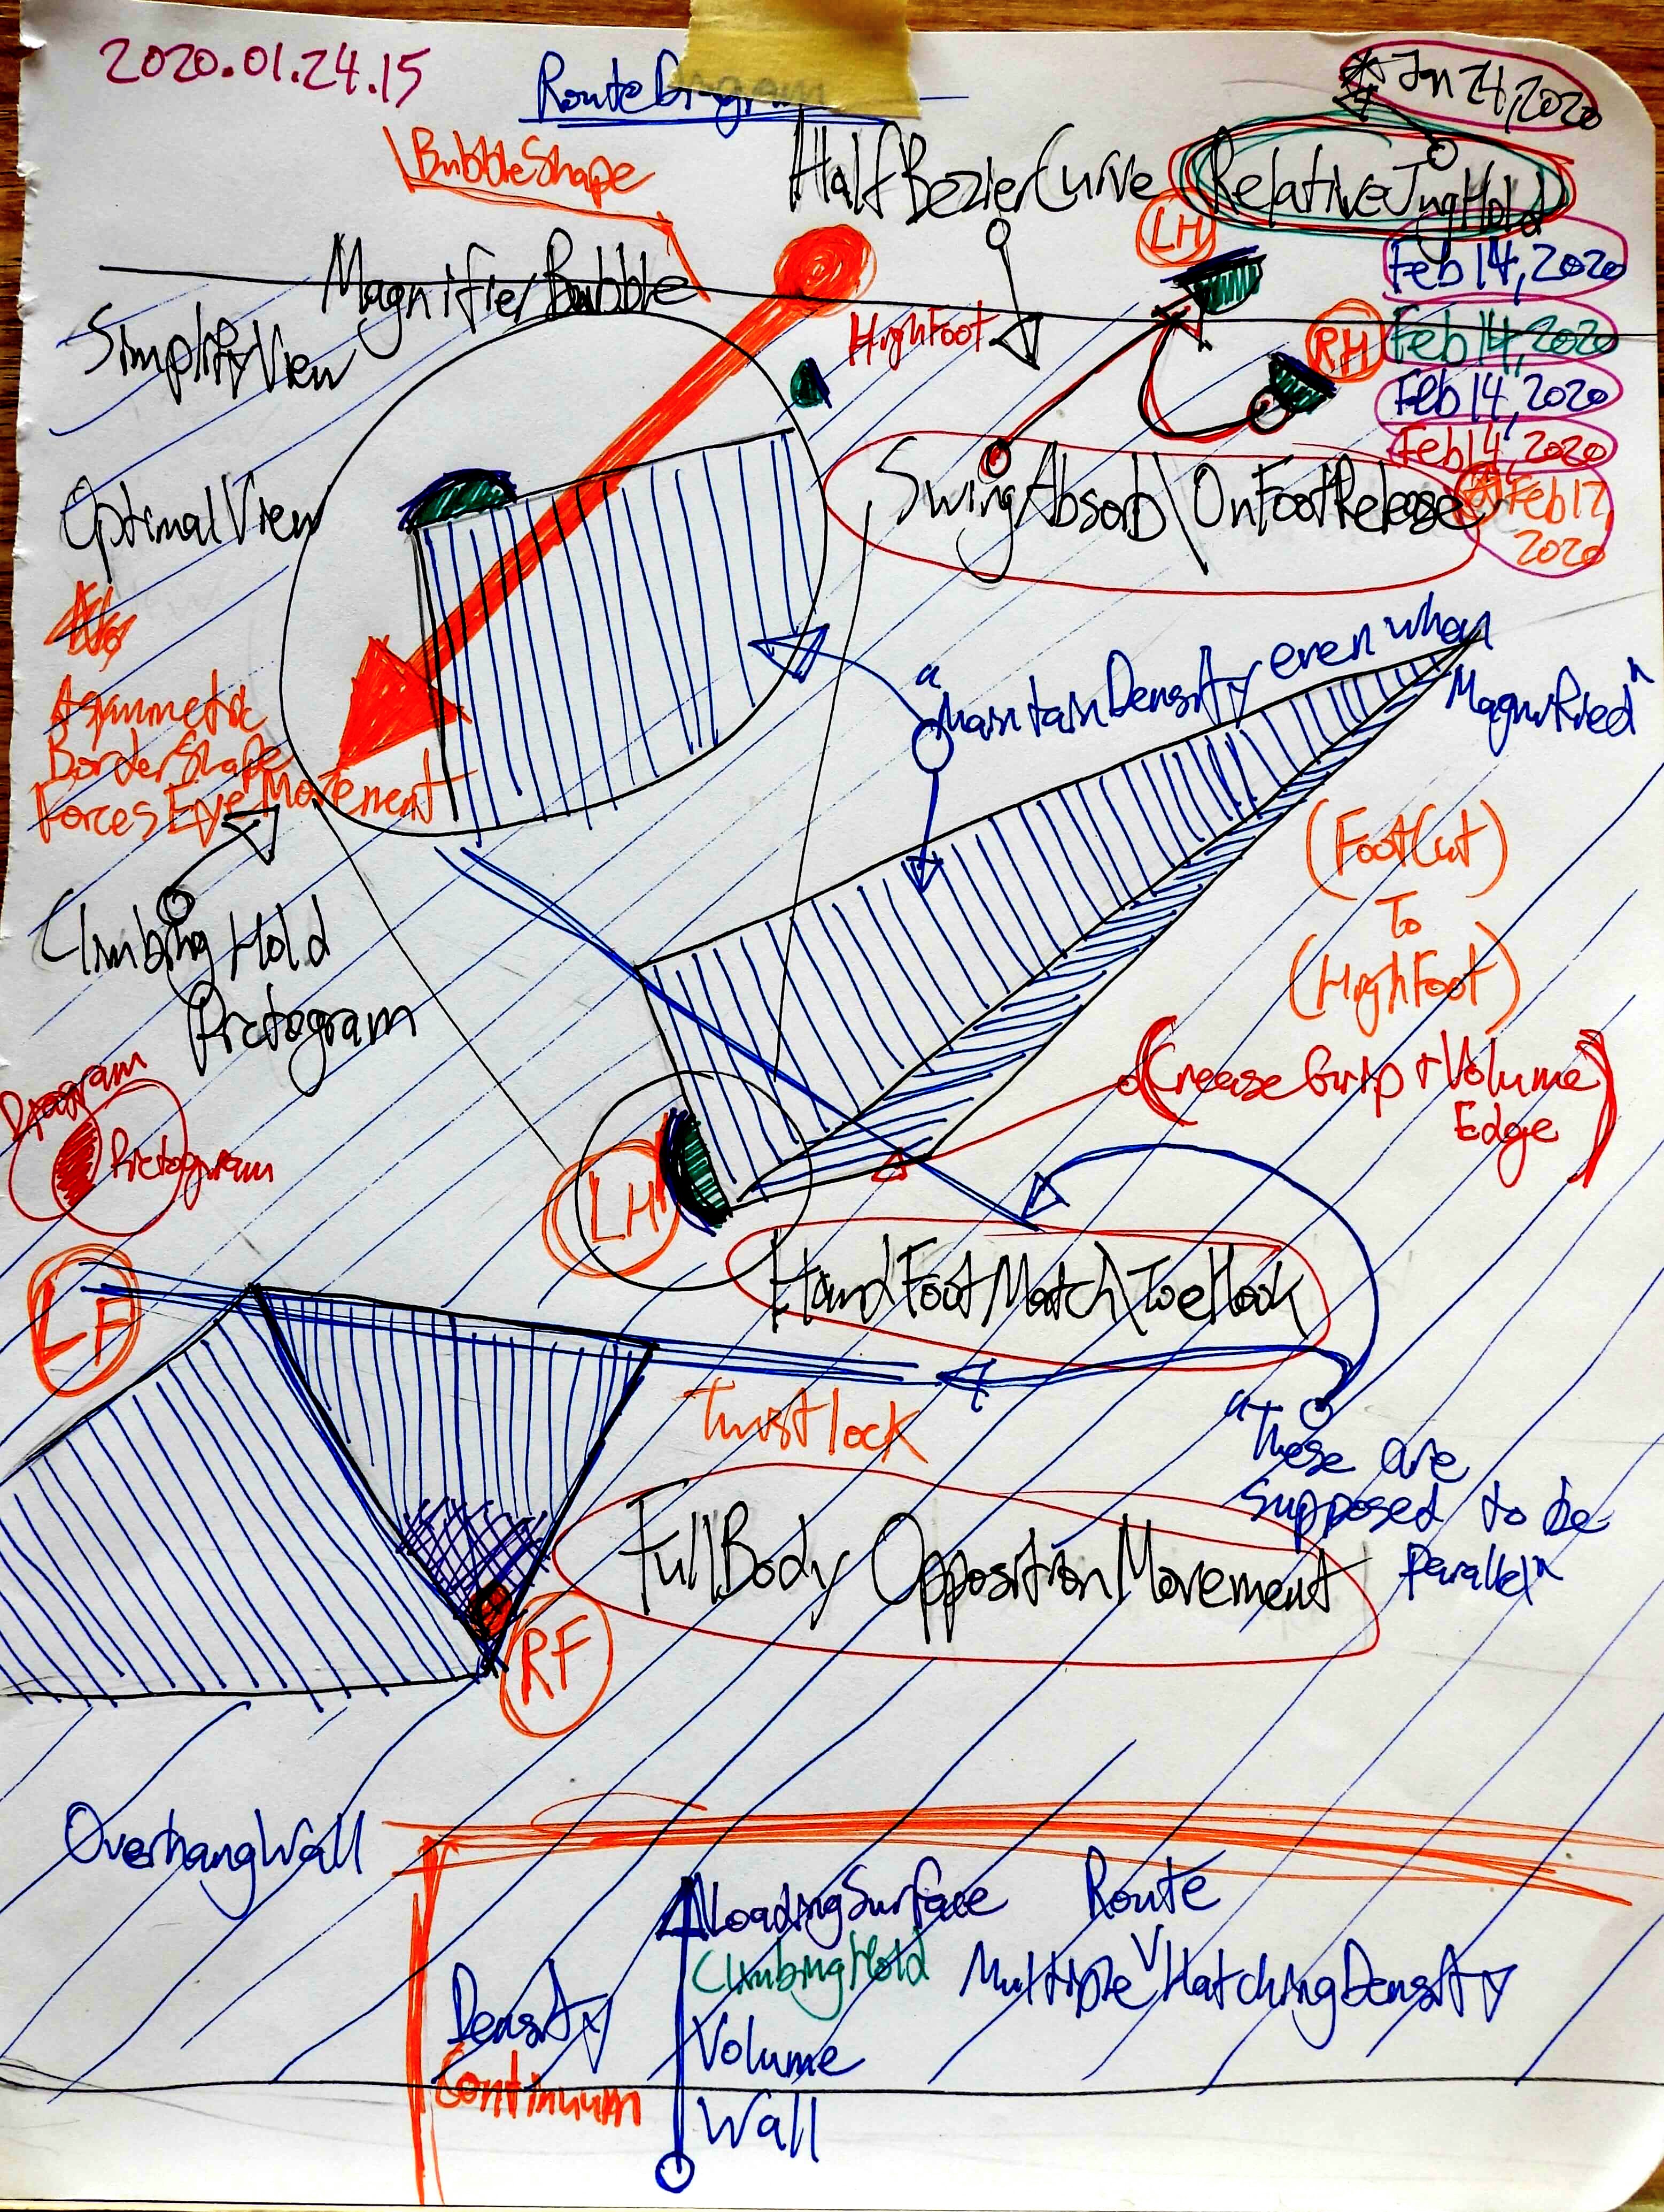 2020.01.24.15
RouteDiagram
* Jan 24, 2020
\BubbleShape
HalfBezierCurve
RelativeJugHold
LH
Feb 14, 2020
MagnifierBubble
SimplifyView
HighFoot
RH
Feb 14, 2020
Feb 14, 2020
Feb 14, 2020
OptimalView
SwingAbsorb\OnFootRelease
Feb 17, 2020
"MaintainDensity even when Magnified"
Asymmetric
BorderShape
Forces EyeMovement
(FootCut)
To
(HighFoot)
Climbing Hold
Pictogram
(CreaseGrip+Volume
Edge)
Diagram
Pictogram
LH
HandFootMatch\ToeHook
LF
Twistlock
"These are
supposed to be
parallel"
FullBody OppositionMovement
RF
OverhangWall
LoadingSurface
Route
ClimbingHold
Multiple HatchingDensity
V
Density
Continuum
Volume
Wall